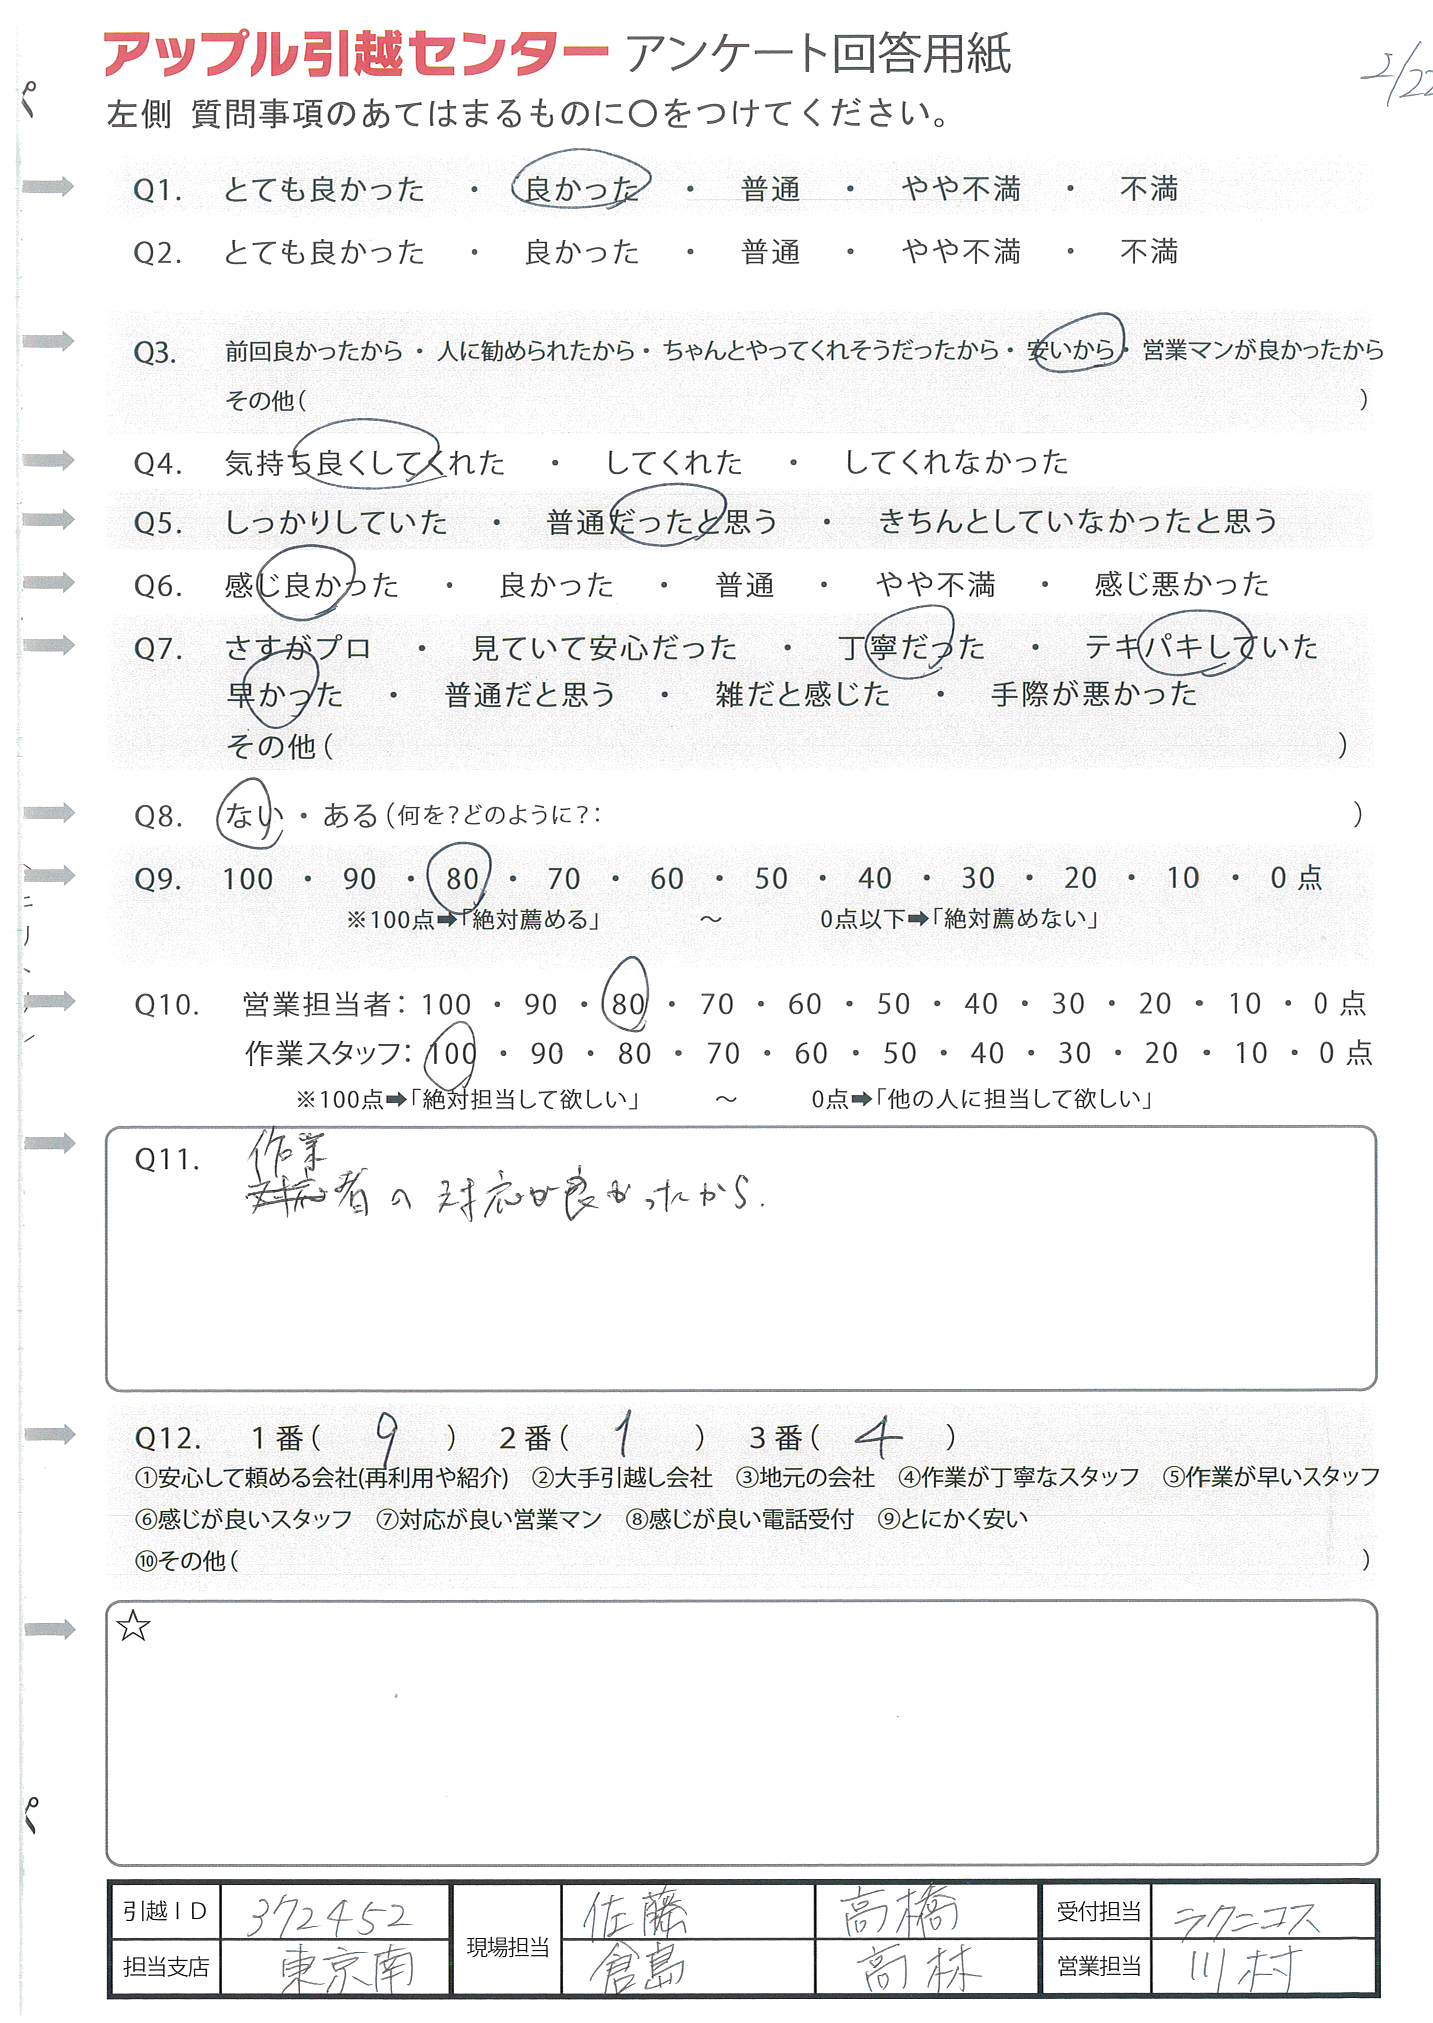 アップル引越センター アンケート回答用紙
2/22
左側 質問事項のあてはまるものに〇をつけてください。
Q1. とても良かった ・ 良かった ・ 普通 ・ やや不満 ・ 不満
Q2. とても良かった ・ 良かった ・ 普通 ・ やや不満 ・ 不満
Q3. 前回良かったから・ 人に勧められたから・ ちゃんとやってくれそうだったから・ 安いから・ 営業マンが良かったから
その他( )
Q4. 気持ち良くしてくれた ・ してくれた ・ してくれなかった
Q5. しっかりしていた ・ 普通だったと思う ・ きちんとしていなかったと思う
Q6. 感じ良かった ・ 良かった ・ 普通 ・ やや不満 ・ 感じ悪かった
Q7. さすがプロ ・ 見ていて安心だった ・ 丁寧だった ・ テキパキしていた
早かった ・ 普通だと思う ・ 雑だと感じた ・ 手際が悪かった
その他( )
Q8. ない ・ ある(何を?どのように?: )
Q9. 100 ・ 90 ・ 80 ・ 70 ・ 60 ・ 50 ・ 40 ・ 30 ・ 20 ・ 10 ・ 0 点
※100点➡「絶対薦める」 ～ 0点以下➡「絶対薦めない」
Q10. 営業担当者: 100 ・ 90 ・ 80 ・ 70 ・ 60 ・ 50 ・ 40 ・ 30 ・ 20 ・ 10 ・ 0 点
作業スタッフ: 100 ・ 90 ・ 80 ・ 70 ・ 60 ・ 50 ・ 40 ・ 30 ・ 20 ・ 10 ・ 0 点
※100点➡「絶対担当して欲しい」 ～ 0点➡「他の人に担当して欲しい」
Q11. 作業
対応者の対応が良かったから.
Q12. 1番( 9 ) 2番( 1 ) 3番( 4 )
①安心して頼める会社(再利用や紹介) ②大手引越し会社 ③地元の会社 ④作業が丁寧なスタッフ ⑤作業が早いスタッフ
⑥感じが良いスタッフ ⑦対応が良い営業マン ⑧感じが良い電話受付 ⑨とにかく安い
⑩その他( )
☆
引越ID 372452 現場担当 佐藤 高橋 受付担当 ラクニコス
担当支店 東京南 倉島 高林 営業担当 川村